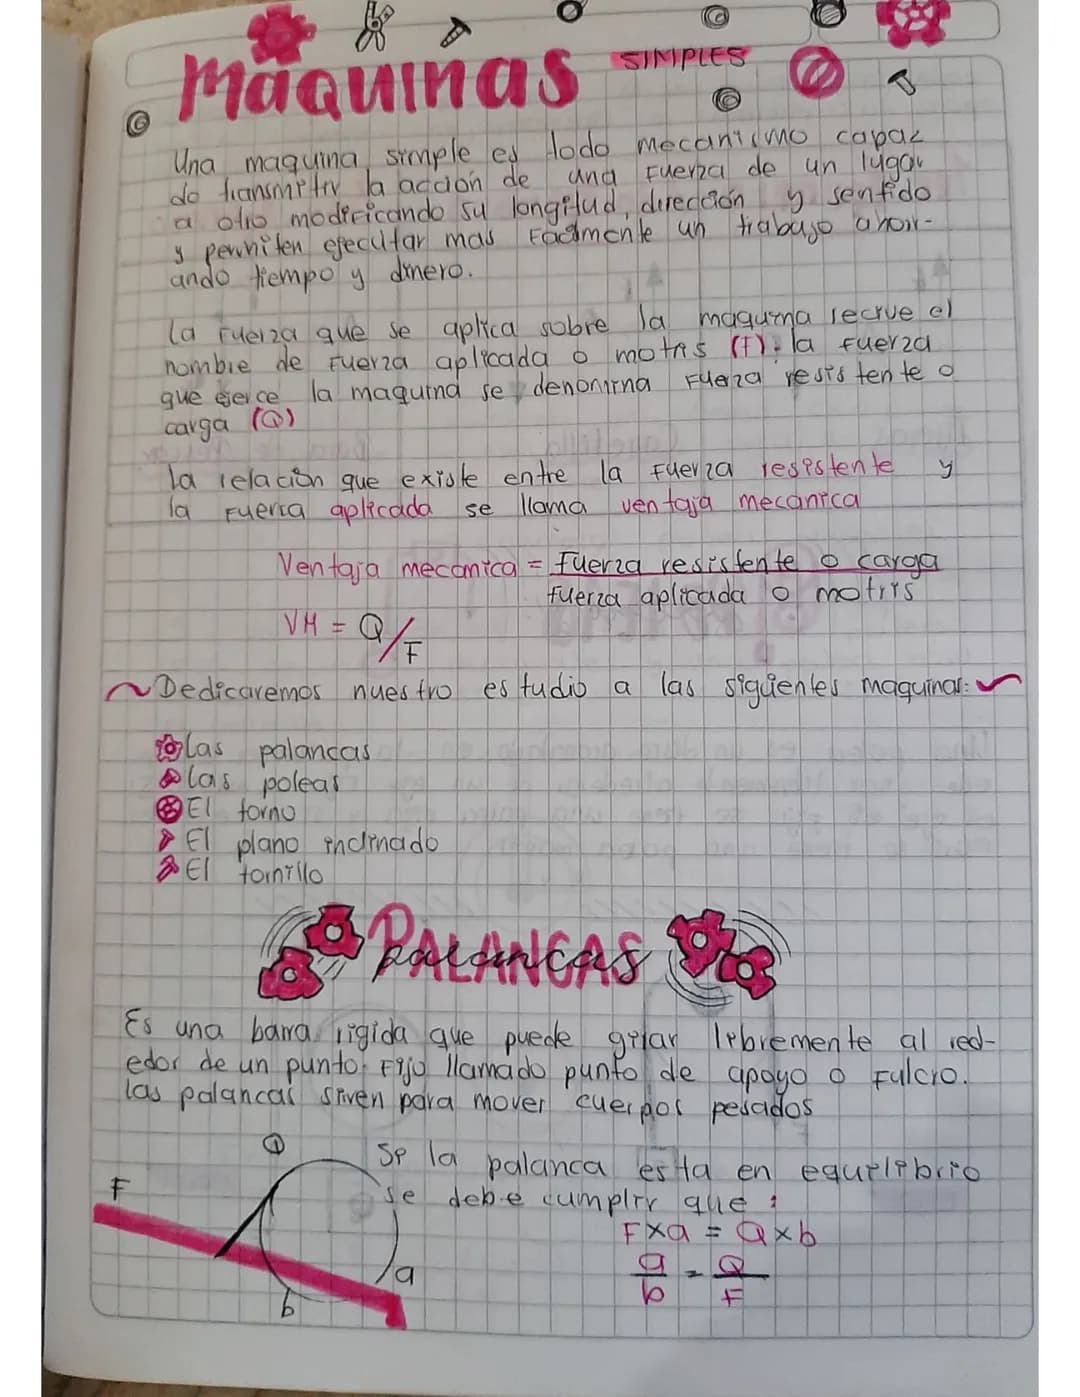 Maquinas SIMPLES
Una maquina simple es todo mecanismo capaz
de transmitir la acción de una Fuerza de un lugar
a otro modificando su longitud, dirección y sentido
y permiten ejecutar mas Facilmente un trabajo ahorr-
ando tiempo y dinero.
La Fuerza que se aplica sobre la maquina recive el
nombre de Fuerza aplicada o motris (F). la fuerza
que ejerce la maquina se denomina Fuerza resistente o
carga (Q)
La relación que existe entre la Fuerza resistente y
la Fuerza aplicada se llama ventaja mecánica
Ventaja mecanica = Fuerza resistente o carga
fuerza aplicada o motris
VM = Q/F
~Dedicaremos nuestro estudio a las siguientes maquinas:~
Las palancas
las poleas
El torno
El plano inclinado
El tornillo
PALANCAS
palancas
Es una barra rigida que puede girar libremente al red-
edor de un punto Fijo llamado punto de apoyo o Fulcro.
las palancas sirven para mover cuerpos pesados
Si la palanca esta en equilibrio
F
se debe cumplir que :
F×a = Q×b
a/b = Q/F
a
b